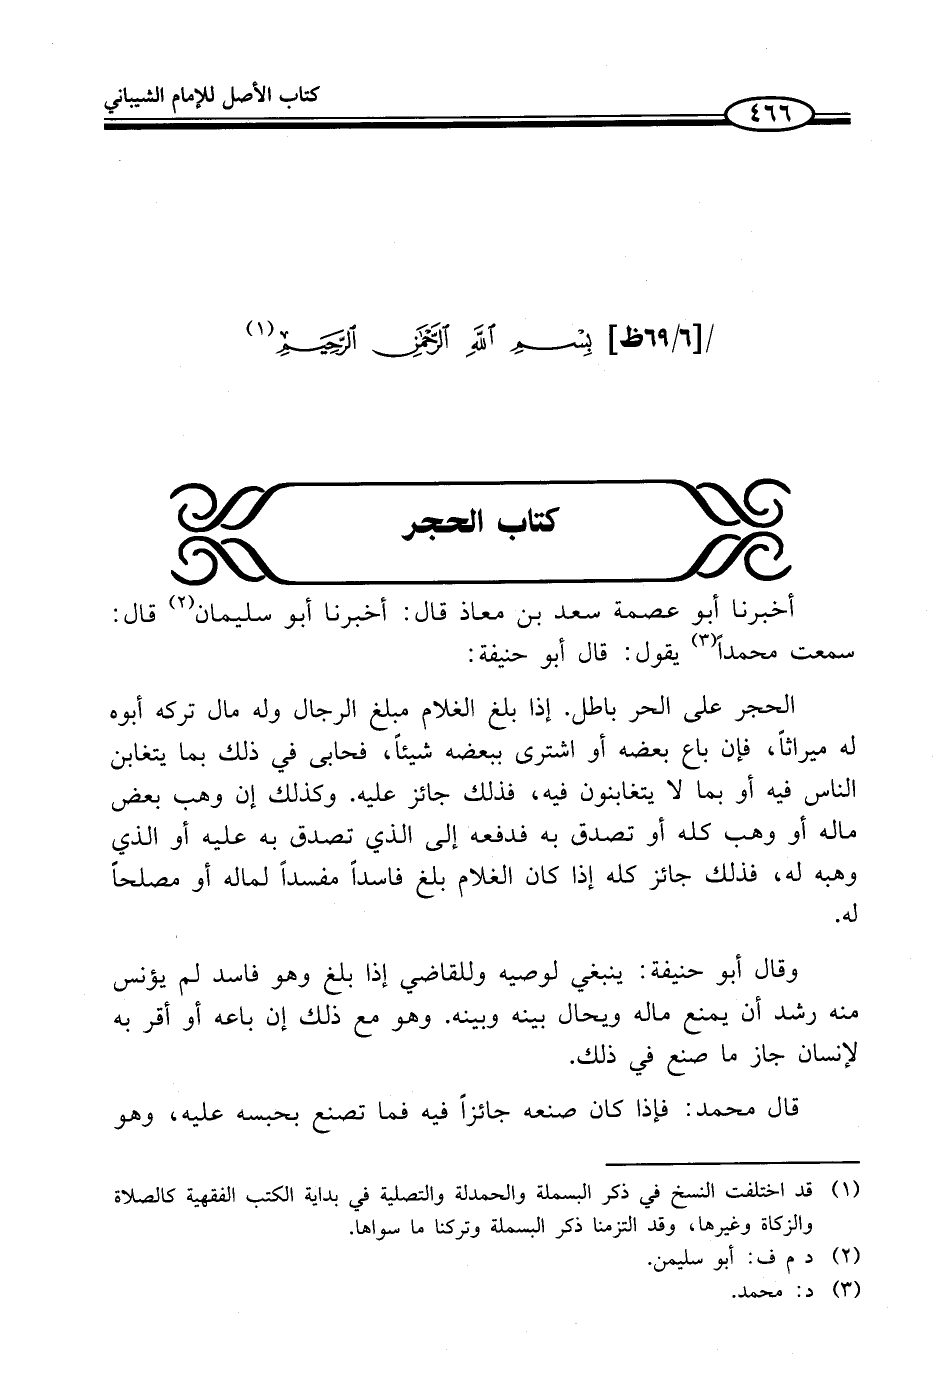 كتاب الأصل للإمام الشيباني
٤٦٦
/[٦/٦٩ظ] بِسْمِ ٱللَّهِ ٱلرَّحْمَٰنِ ٱلرَّحِيمِ(١)
كتاب الحجر
أخبرنا أبو عصمة سعد بن معاذ قال: أخبرنا أبو سليمان(٢) قال:
سمعت محمداً(٣) يقول: قال أبو حنيفة:
الحجر على الحر باطل. إذا بلغ الغلام مبلغ الرجال وله مال تركه أبوه
له ميراثاً، فإن باع بعضه أو اشترى ببعضه شيئاً، فحابى في ذلك بما يتغابن
الناس فيه أو بما لا يتغابنون فيه، فذلك جائز عليه. وكذلك إن وهب بعض
ماله أو وهب كله أو تصدق به فدفعه إلى الذي تصدق به عليه أو الذي
وهبه له، فذلك جائز كله إذا كان الغلام بلغ فاسداً مفسداً لماله أو مصلحاً
له.
وقال أبو حنيفة: ينبغي لوصيه وللقاضي إذا بلغ وهو فاسد لم يؤنس
منه رشد أن يمنع ماله ويحال بينه وبينه. وهو مع ذلك إن باعه أو أقر به
لإنسان جاز ما صنع في ذلك.
قال محمد: فإذا كان صنعه جائزاً فيه فما تصنع بحبسه عليه، وهو
(١) قد اختلفت النسخ في ذكر البسملة والحمدلة والتصلية في بداية الكتب الفقهية كالصلاة
والزكاة وغيرها، وقد التزمنا ذكر البسملة وتركنا ما سواها.
(٢) د م ف: أبو سليمن.
(٣) د: محمد.